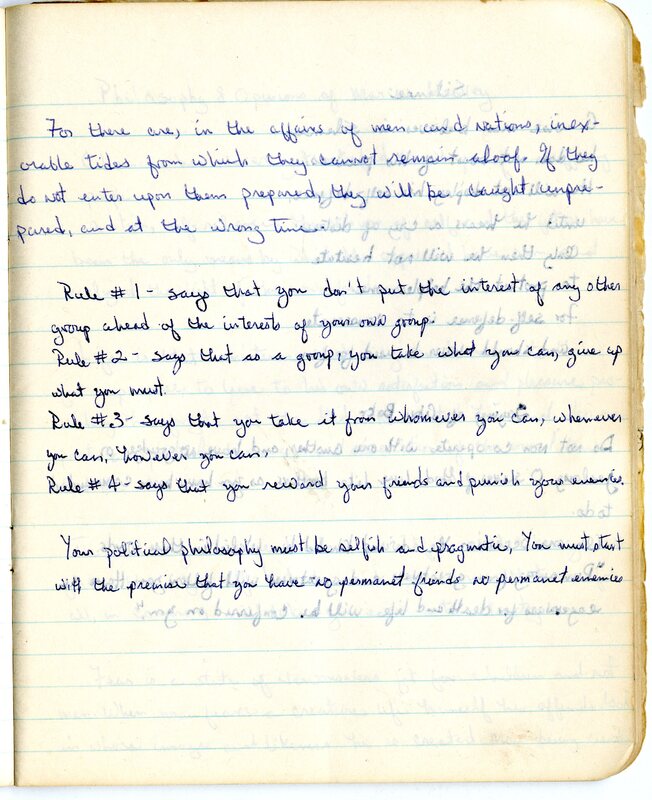 For there are, in the affairs of men and nations, inex-
orable tides from which they cannot remain aloof. If they
do not enter upon them prepared, they will be caught unpre-
pared, and at the wrong time.
Rule # 1 - says that you don't put the interest of any other
group ahead of the interests of your own group.
Rule # 2 - says that as a group, you take what you can, give up
what you must.
Rule # 3 - says that you take it from whomever you can, whenever
you can, however you can.
Rule # 4 - says that you reward your friends and punish your enemies.
Your political philosophy must be selfish and pragmatic. You must start
with the premise that you have no permanet friends no permanet enemies